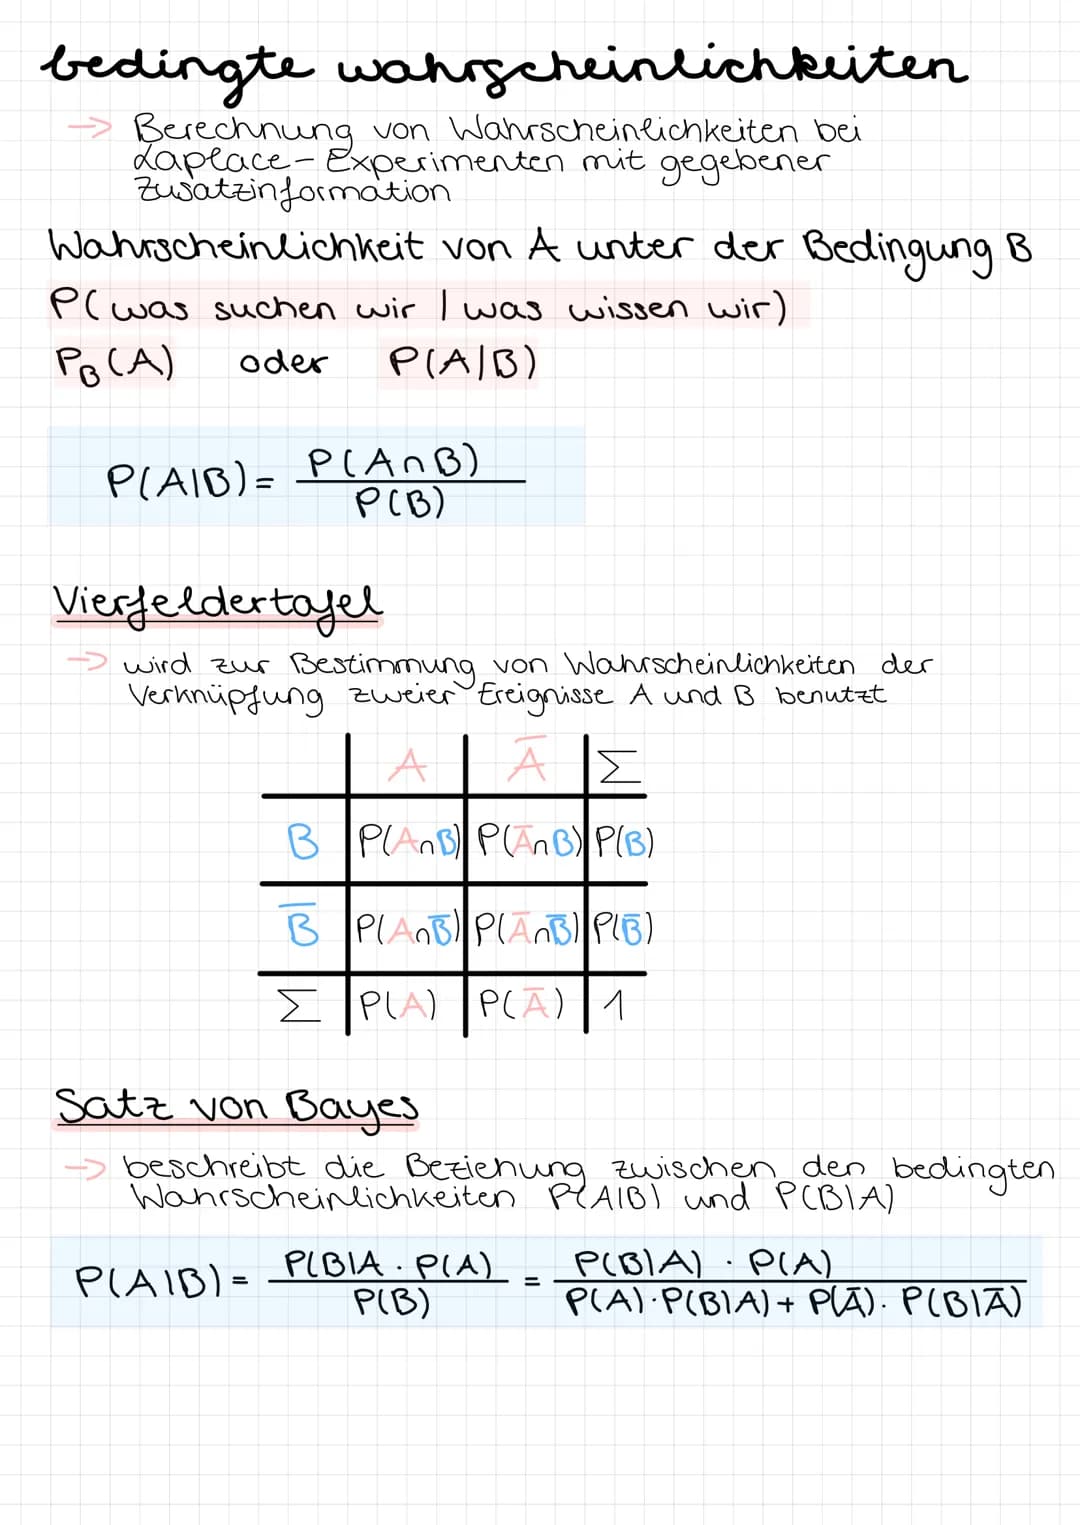 bedingte wahrscheinlichkeiten
-> Berechnung von Wahrscheinlichkeiten bei
Laplace-Experimenten mit gegebener
Zusatzinformation
Wahrscheinlichkeit von A unter der Bedingung B
P(was suchen wir | was wissen wir)
P_B(A) oder P(A|B)
P(A|B) = P(A∩B) / P(B)
Vierfeldertafel
-> wird zur Bestimmung von Wahrscheinlichkeiten der
Verknüpfung zweier Ereignisse A und B benutzt
A Ā Σ
B P(A∩B) P(Ā∩B) P(B)
B̅ P(A∩B̅) P(Ā∩B̅) P(B̅)
Σ P(A) P(Ā) 1
Satz von Bayes
-> beschreibt die Beziehung zwischen den bedingten
Wahrscheinlichkeiten P(A|B) und P(B|A)
P(A|B) = P(B|A · P(A) / P(B) = P(B|A) · P(A) / P(A)·P(B|A) + P(Ā)· P(B|Ā)